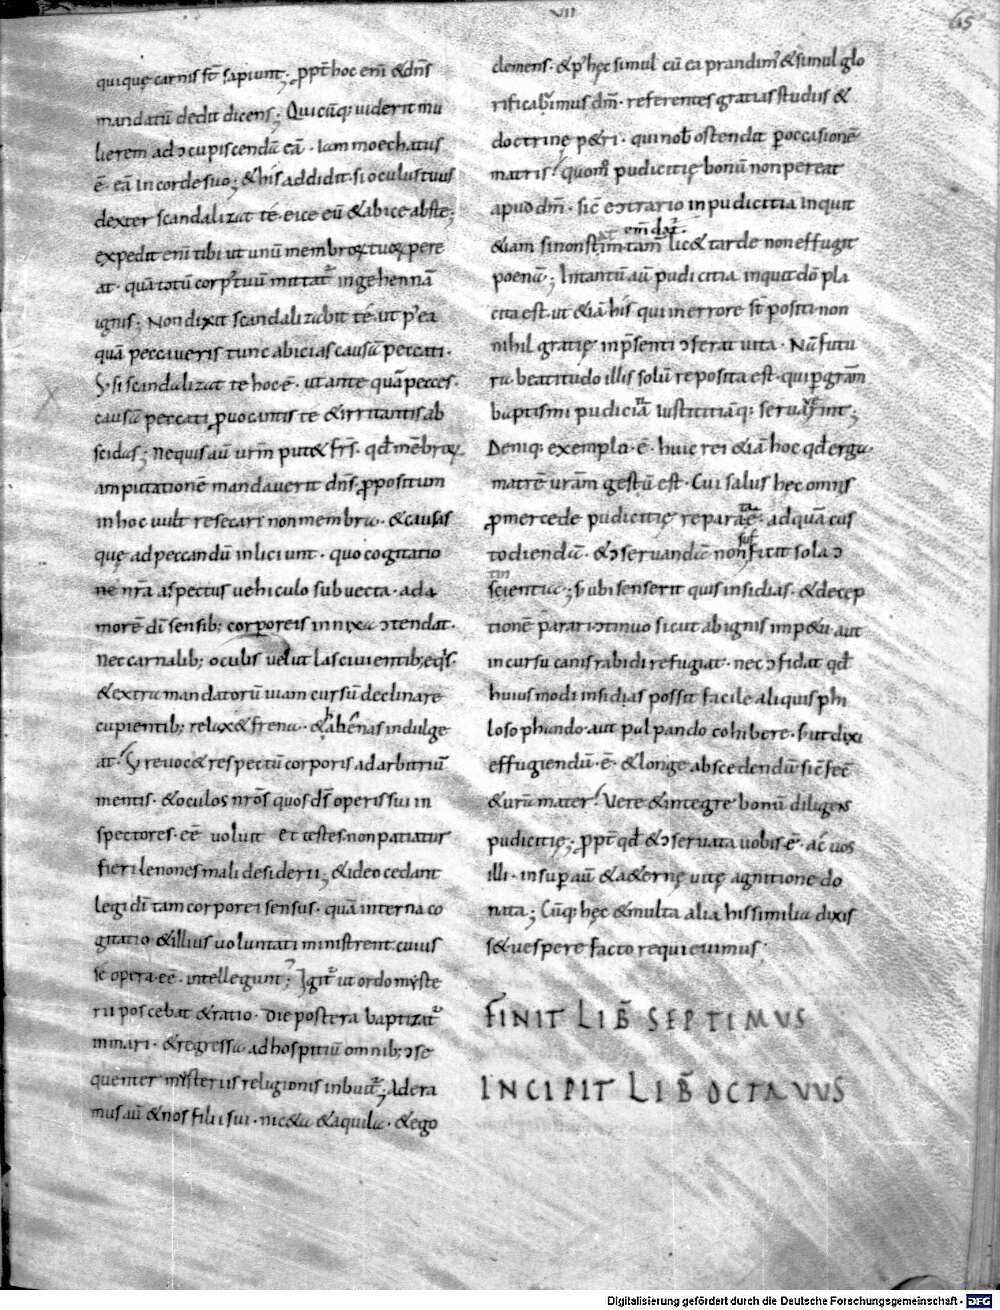 VII
65
quiquę carnis st̄ sapiunt; ꝓpt̄ hoc eni̅ &dn̄s
mandatū dedit dicens; Quicūq; uiderit mu
lierem ad ɔcupiscendā eā · Iam moechatus
ē · eā In corde suo; & his addidit · si oculus tuus
dexter scandalizat te · eice eū & abice abs te;
expedit eni̅ tibi ut unū membroꝝ tuoꝝ pere
at · quā totū corp' tuū mittat̉ in gehennā
ignis; Non dixit scandalizabit te · ut p' ea
quā peccaueris tunc abicias causā peccati ·
S; si scandalizat te hoc ē · ut ante quā pecces ·
causā peccati ꝓuocantis te & irritantis ab
scidas; Ne quis aū ur̄m put& fr̄s · qd̄ mēbroꝝ
amputationē mandauerit dn̄s · ꝓpositum
in hoc uult resecari non membra · & causas
quę ad peccandū inliciunt · quo cogitatio
ne nr̄a aspectus uehiculo subuecta · ad a
morē dī sensib; corporeis innixa ɔtendat ·
Nec carnalib; oculis uelut lasciuientib; eq's ·
& extra mandatorū uiam cursū declinare
cupientib; relax& frena · & habenas indulge
at · S; reuoc& respectū corporis ad arbitriū
mentis · & oculos nr̄os quos ds̄ operis sui in
spectores · eē uoluit et testes non patiatur
fieri lenones mali desiderii; & ideo cedant
legi dī tam corporei sensus · quā interna co
gitatio & illius uoluntati ministrent cuius
se opera · eē · intellegunt; Igit̉ ut ordo myste
rii poscebat & ratio · die postera baptizat̉
· & regressa ad hospitiū omnib; ɔse
quenter mysteriis religionis inbuit̉; Adera
mus aū & nos filii sui · nic&a & aquila · & ego
clemens · & p' hęc simul cū ea prandim' & simul glo
rificabimus dm̄ · referentes gratias studiis &
doctrinę p&ri · qui nob̄ ostendit ꝑ occasionē
matris · quom̊ pudicitię bonū non pereat
apud dm̄ · sic̄ eɔtrario inpudicitia inquit
enī dat̉ ·
&iam si non statim tam̄ lic& tarde non effugit
poenā; Intantū aū pudicitia inquit dō pla
cita est · ut &iā his qui in errore st̄ positi non
nihil gratię in p̄senti ɔferat uita · Nā futu
ra beatitudo illis solū reposita est · qui ꝑ gram̄
baptismi pudiciā iustitiāq; seruauerint;
Deniq; exemplo · ē · huic rei &iā hoc qd̄ erga
matrē uram̄ gestū est · Cui salus hec omnis
ꝓ mercede pudicitię reparata ē · ad quā cus
todiendā · & ɔseruandā non sufficit sola ɔ
tin
scientia; S; ubi senserit quis insidias · & decep
tionē parari ɔtinuo sicut ab ignis imp&u aut
in cursu canis rabidi refugiat · nec ɔfidat qd̄
huius modi insidias possit facile aliquis phi
losophando aut palpando cohibere · S; ut dixi
effugiendū · ē · & longe abscedendū sic̄ fec̄
& ura mater; Vere & integre bonū diligens
pudicitię; ꝓpt̄ qd̄ & ɔseruata uobis · ē · ac̄ uos
illi · insuꝑ aū & a&ernę uitę agnitione do
nata; Cūq; hęc & multa alia his similia dixis
s& uespere facto requieuimus ·
FINIT LIB̄ SEPTIMUS
INCIPIT LIB̄ OCTAVUS
Digitalisierung gefördert durch die Deutsche Forschungsgemeinschaft - DFG